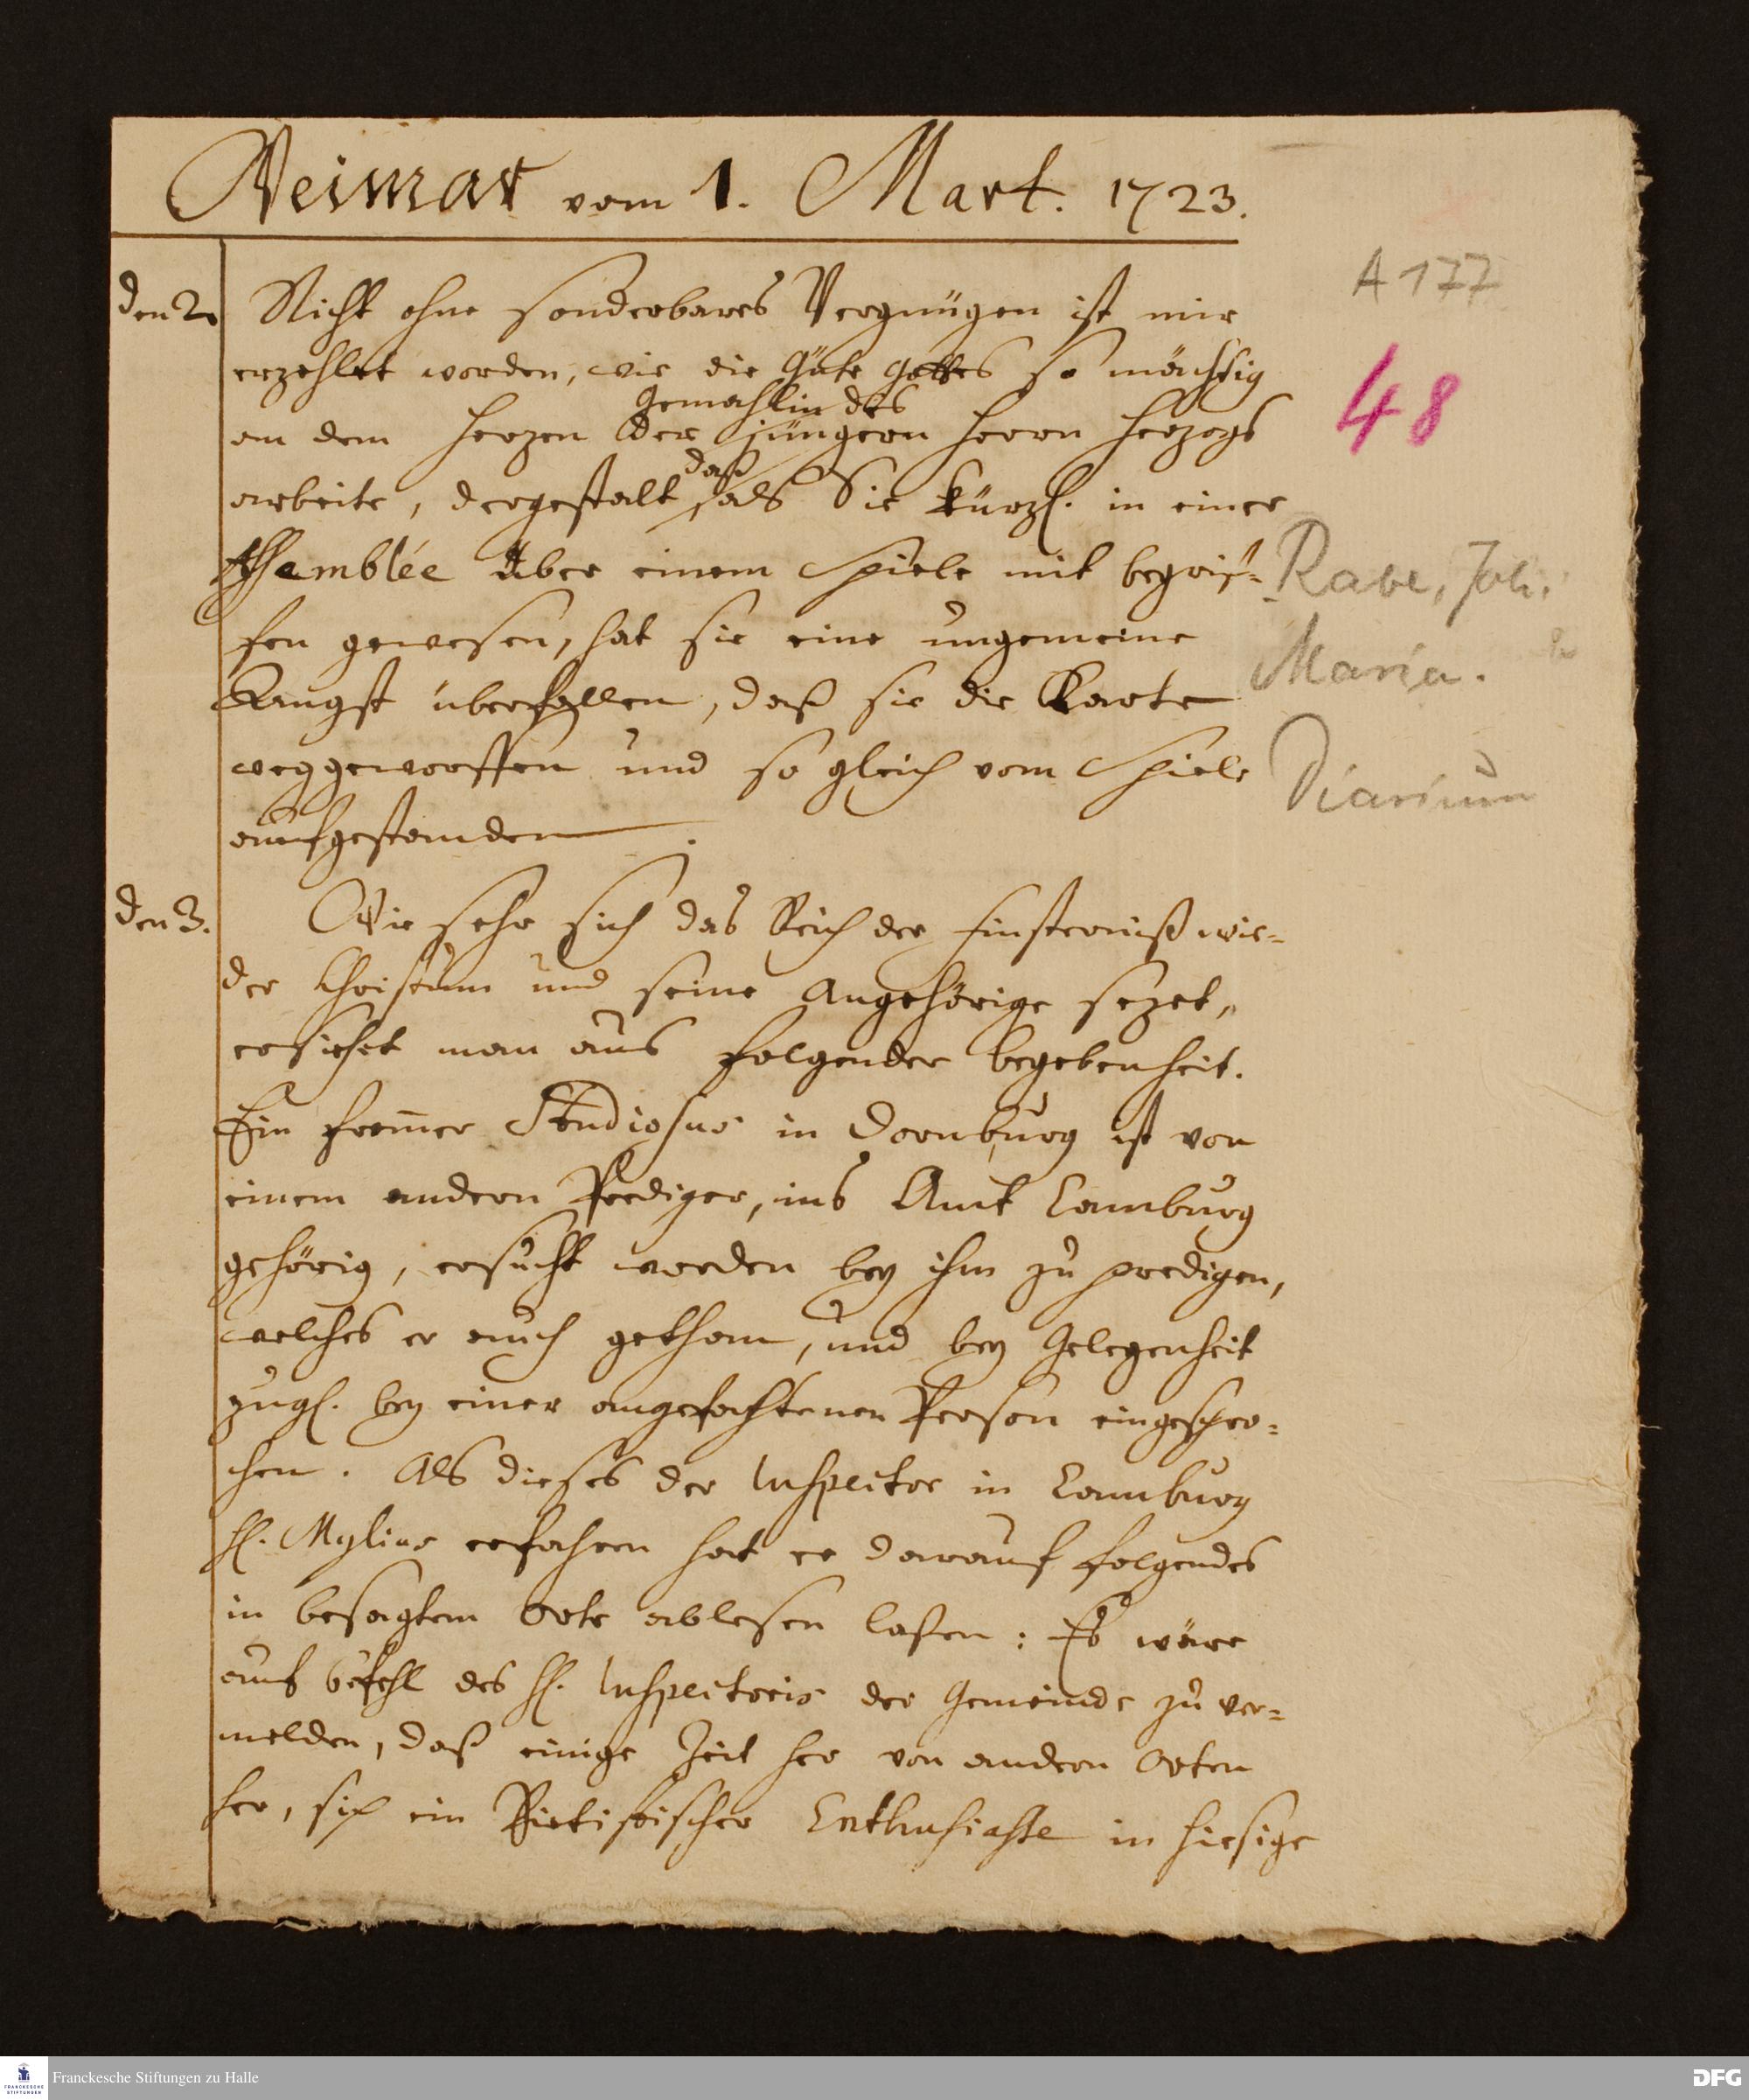 Weimar vom 1. Mart. 1723.
A 177
48
den 2. Nicht ohne sonderbares Vergnügen ist mir
erzehlet worden, wie die Güte Gottes so mächtig
Gemahlin des
an dem Herzen der jüngern Herrn Herzogs
daß
arbeite, dergestalt, als Sie kürzl. in einer
Assemblée über einem Spiele mit begrif-
fen gewesen, hat sie eine ungemeine
Angst überfallen, daß sie die Karte
weggeworffen und so gleich vom Spiele
aufgestanden.
Rabe, Joh.
Maria.
Diarium
den 3. Wie sehr sich das Reich der Finsterniß wie-
der Christum und seine Angehörige sezet,
ersiehet man aus folgender begebenheit.
Ein from̄er Studiosus in Dornburg ist von
einem andern Prediger, ins Amt Camburg
gehörig, ersucht worden bey ihm zu predigen,
welches er auch gethan, und bey Gelegenheit
zugl. bey einer angefochtenen Person eingespro-
chen. Als dieses der Inspector in Camburg
H. Mylius erfahren hat er darauf folgendes
in besagtem Orte ablesen laßen: Es wäre
auf befehl des H. Inspectoris der Gemeinde zu ver-
melden, daß einige Zeit her von andern Orten
her, sich ein Pietistischer Enthusiaste in hiesige
Franckesche Stiftungen zu Halle
DFG